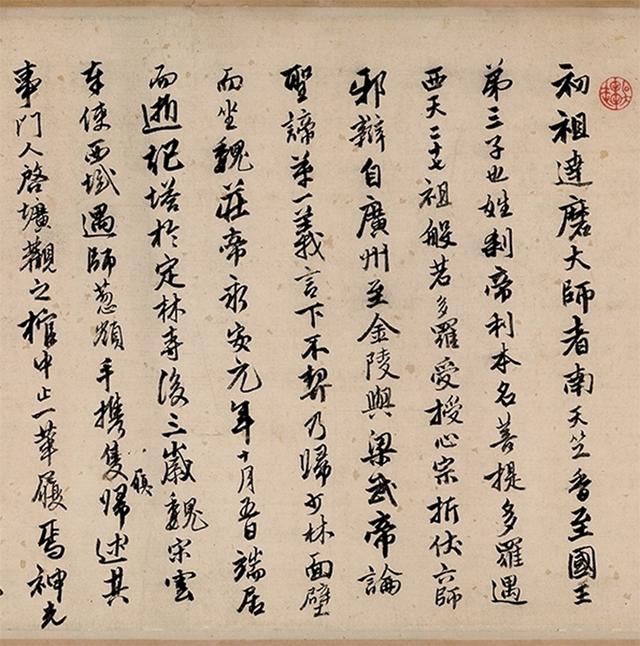 初祖達磨大師者南天竺香至國王
弟三子也姓剎帝利本名菩提多羅遇
西天二十七祖般若多羅受授心宗折伏六師
邪辯自廣州至金陵與梁武帝論
聖諦第一義言下不契乃歸少林面壁
而坐魏莊帝永安元年十月五日端居
而逝記塔於定林寺後三歲魏宋雲
奉使西域遇師葱嶺手携隻履歸述其
事門人啓壙觀之棺中止一革履焉神光